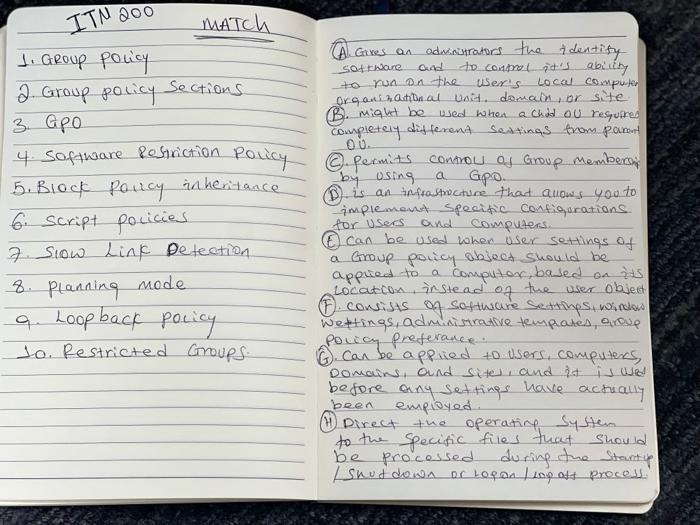 ITN 200
MATCH
1. Group Policy
2. Group policy Sections
3. GPO
4. Software Restriction Policy
5. Block Policy inheritance
6. Script policies
7. Slow Link Detection
8. Planning mode
9. Loopback policy
10. Restricted Groups.
(A). Gives an administrators the identify
software and to control it's ability
to run on the user's local computer
organizational unit, domain, or site
(B). might be used when a child OU requires
completely different settings from parent
OU.
(C). Permits control of Group membership
by using a Gpo.
(D). is an infrastructure that allows you to
implement specific configurations
for users and computers.
(E) can be used when user settings of
a Group policy object should be
applied to a computer, based on its
location, instead of the user object
(F). consists of software settings, window
wettings, administrative templates, group
policy preferance.
(G). Can be applied to users, computers,
Domains, and sites, and it is used
before any settings have actually
been employed.
(H) Direct the operating system
to the specific files that should
be processed during the startup
/ shutdown or logon / log off process.